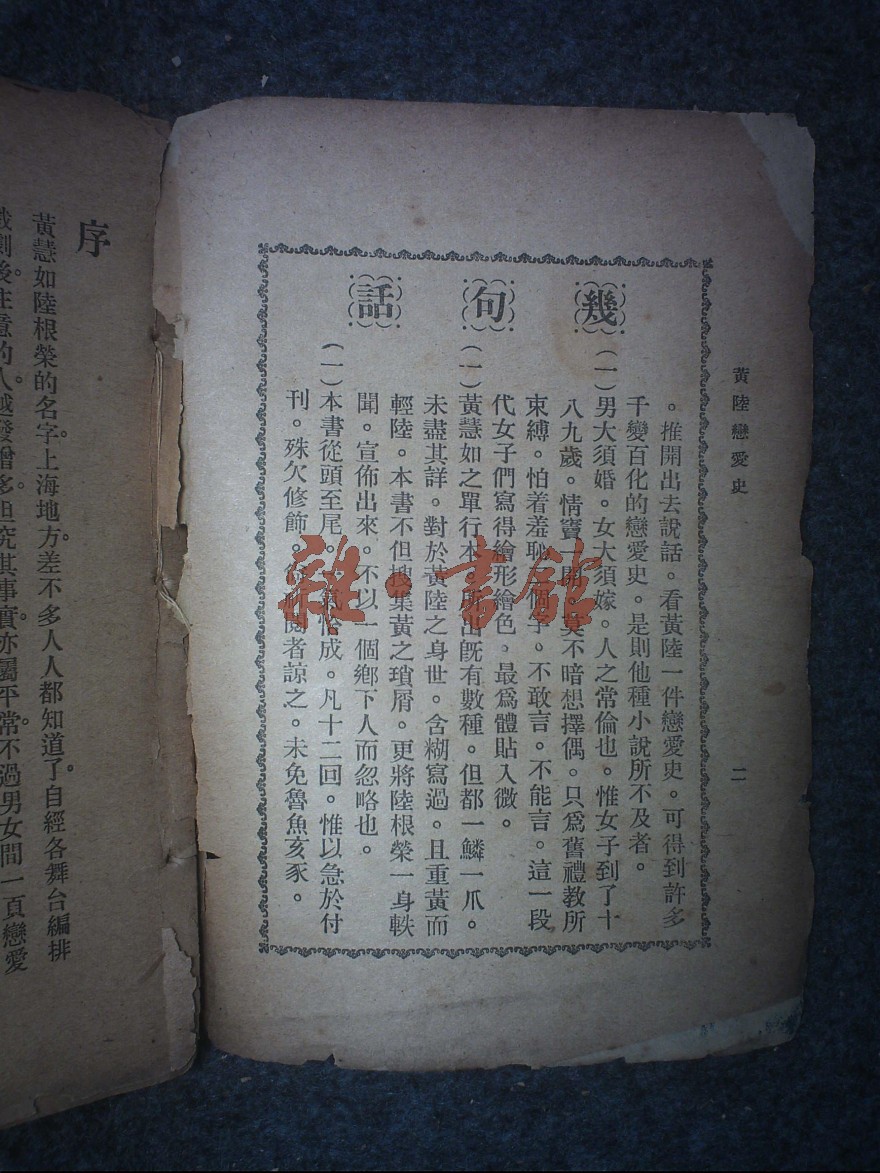 黃陸戀愛史
二
幾句話
。推開出去說話。看黃陸一件戀愛史。可得到許多
千變百化的戀愛史。是則他種小說所不及者。
(一)男大須婚。女大須嫁。人之常倫也。惟女子到了十
八九歲。情竇一開。莫不暗想擇偶。只爲舊禮教所
束縛。怕着羞恥二個字。不敢言。不能言。這一段
代女子們寫得繪形繪色。最爲體貼入微。
(一)黃慧如之單行本。所出旣有數種。但都一鱗一爪。
未盡其詳。對於黃陸之身世。含糊寫過。且重黃而
輕陸。本書不但搜集黃之瑣屑。更將陸根榮一身軼
聞。宣佈出來。不以一個鄉下人而忽略也。
(一)本書從頭至尾。一氣恰成。凡十二回。惟以急於付
刊。殊欠修飾。祈閱者諒之。未免魯魚亥豕。
雜·書館
序
黃慧如陸根榮的名字。上海地方。差不多人人都知道了。自經各舞台編排
後。注意的人。越發增多。但究其事實。亦屬平常。不過男女間一頁戀愛